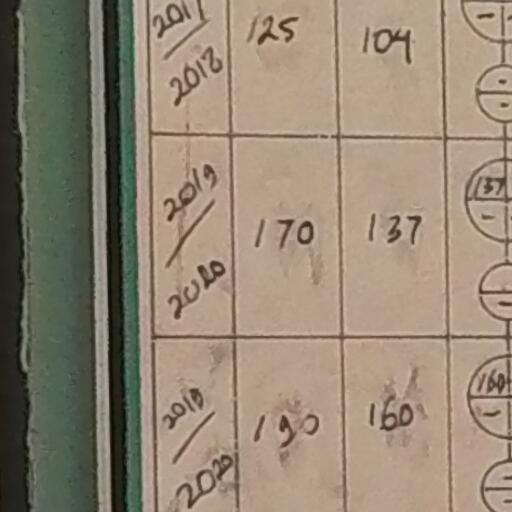 2017/2018 125 104
2019/2020 170 137 137
2019/2020 190 160 160